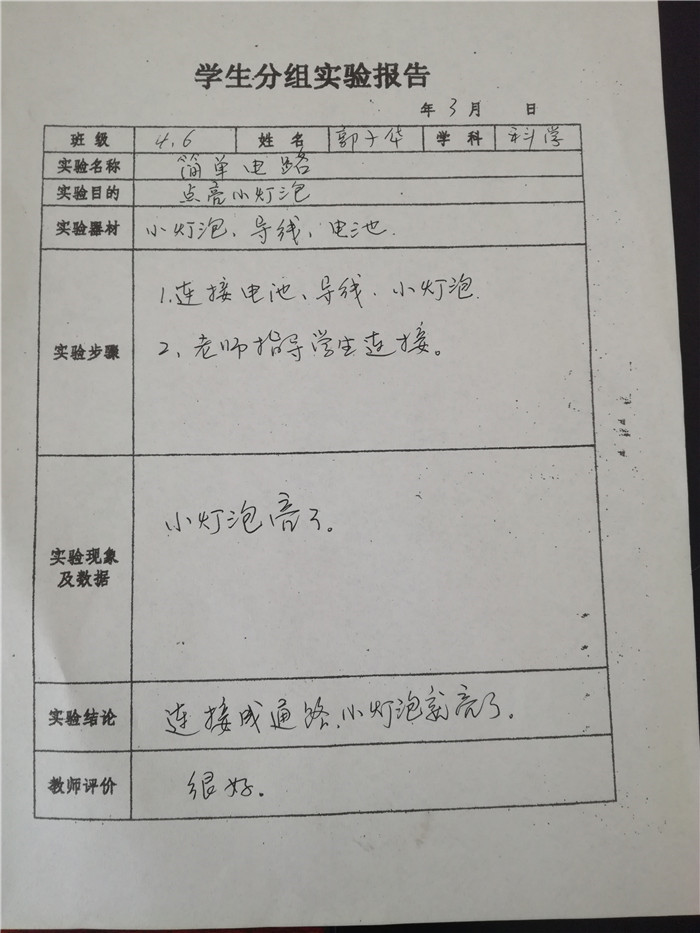 学生分组实验报告
年 3 月 日
班级 4.6 姓名 郭子华 学科 科学
实验名称 简单电路
实验目的 点亮小灯泡
实验器材 小灯泡、导线、电池.
实验步骤
1.连接电池、导线、小灯泡.
2、老师指导学生连接。
实验现象
及数据
小灯泡亮了。
实验结论 连接成通路,小灯泡就亮了。
教师评价 很好.